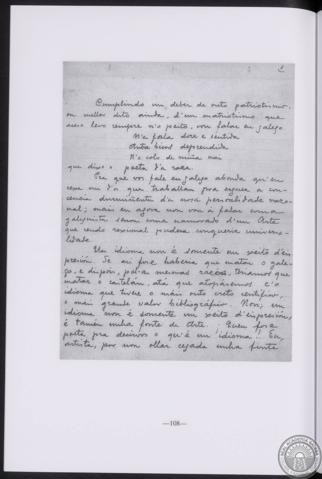 Cumplindo un deber de outo patriotismo,
ou mellor dito ainda, d'un matriotismo que
levo sempre n-o peito, vou falar en galego
N-a fala doce e sentida
Antre bicos deprendida
N-o colo de miña nai
que dixo o poeta d'a raza.
Pra que vos fale en galego abonda qu'eu
sexa un d'os que traballan pra erguer a con-
cencia da nosa personalidade nacio-
nal; mais eu agora non vou a falar com-a
galeguista senon coma namorado d'un Arte
que sendo rexional pudera conqueril-a universa-
lidade.
Un idioma non é somente un xeito d'ex-
presión. Se asi fora habería que matar o gale-
go, e dispois, pol-as mesmas razós, teriamos que
matar o castelan, ata que atopasemos c'o
idioma que tivera o máis outo creto centifico,
o máis grande valor bibliográfico. Non; un
idioma non é somente un xeito d'expresión,
é tamén unha fonte de Arte. ¡Quen fora
poeta pra decirvos o qu'é un idioma! Eu,
artista, por non ollar cegada unha fonte
—108—
REAL ACADEMIA GALEGA